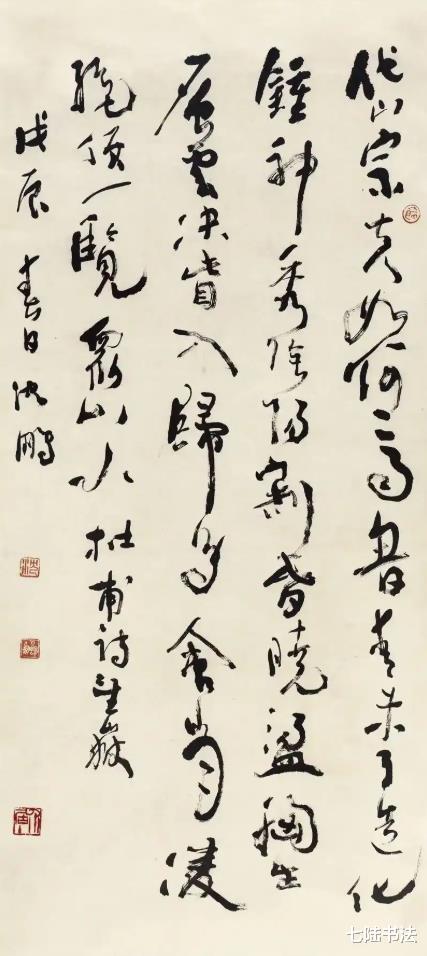 岱宗夫如何齊魯青未了造化
鍾神秀陰陽割昏曉盪胸生
層雲決眥入歸鳥會當凌
絕頂一覽眾山小 杜甫詩望嶽
戊辰春日沈鵬
七陆书法